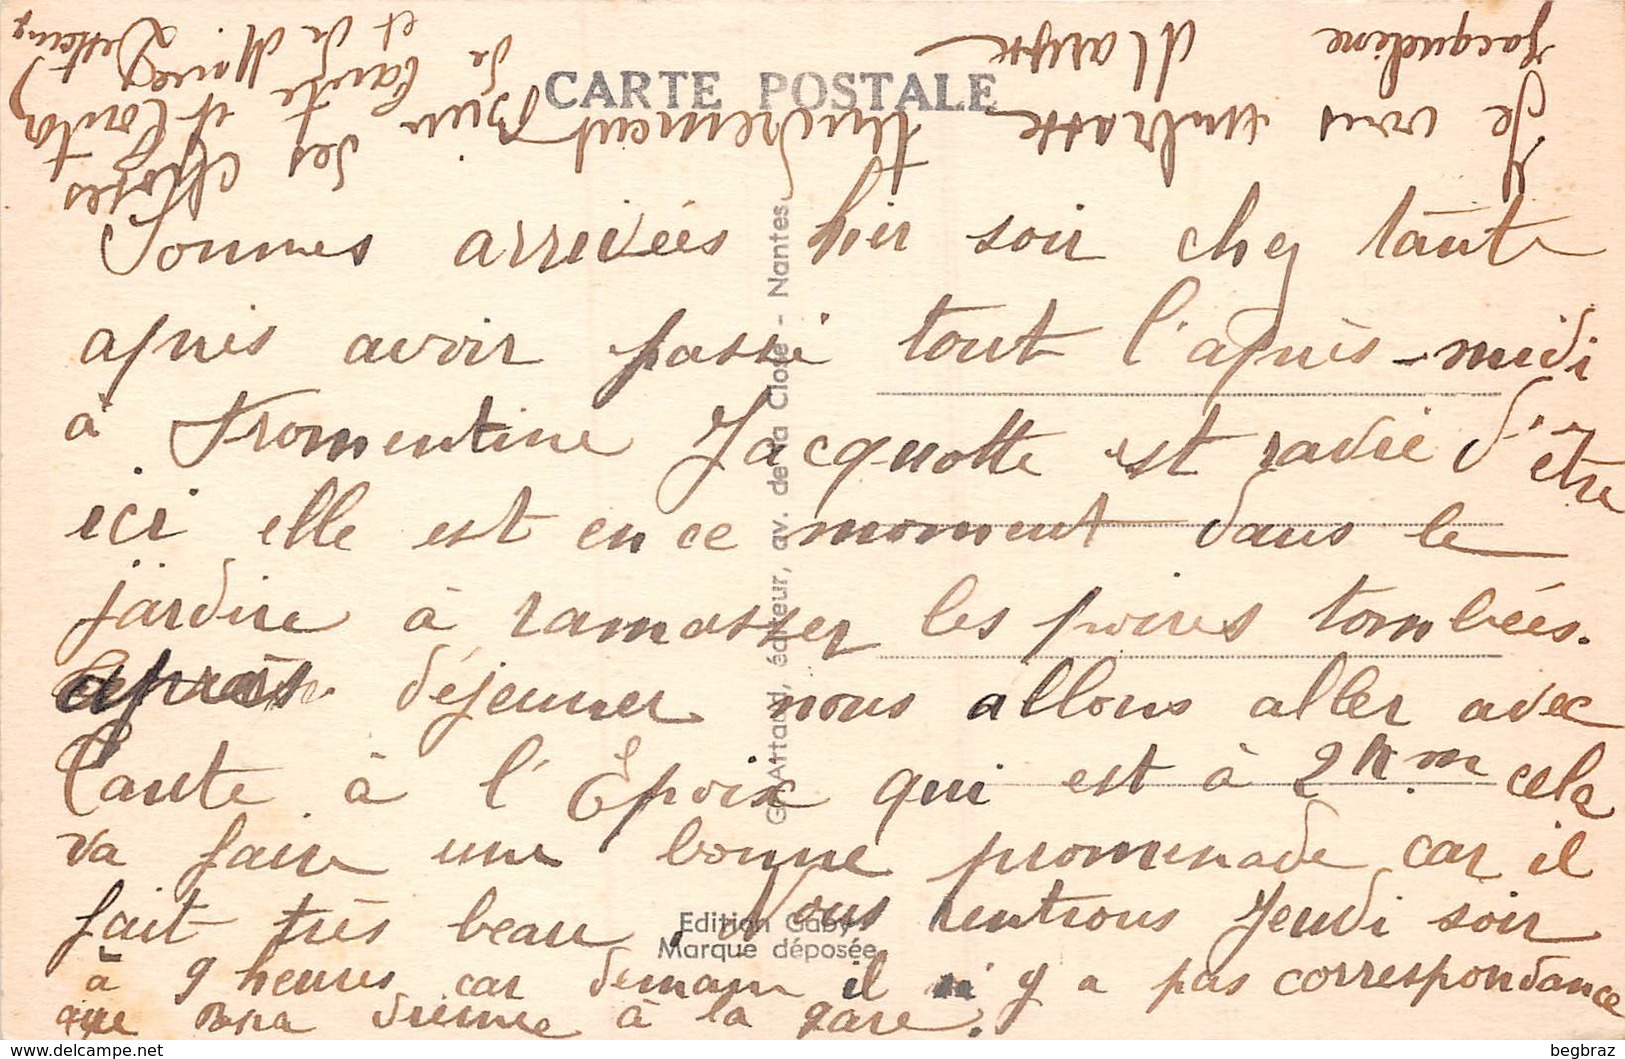 CARTE POSTALE
Sommes arrivées hier soir chez tante
après avoir passé tout l'après-midi
à Fromentine Jacquotte est ravie d'être
ici elle est en ce moment dans le
jardin à ramasser les poires tombées.
après déjeuner nous allons aller avec
tante à l'Epoix qui est à 2 km cela
va faire une bonne promenade car il
fait très beau, Nous rentrons Jeudi soir
à 9 heures car demain il n'y a pas correspondance
que vienne à la gare.
Je vous embrasse tendrement
Jacqueline Maryse
Bien des choses
de tante et
et de
G. Artaud, éditeur, av. de la Close - Nantes
Edition Gaby
Marque déposée
begbraz